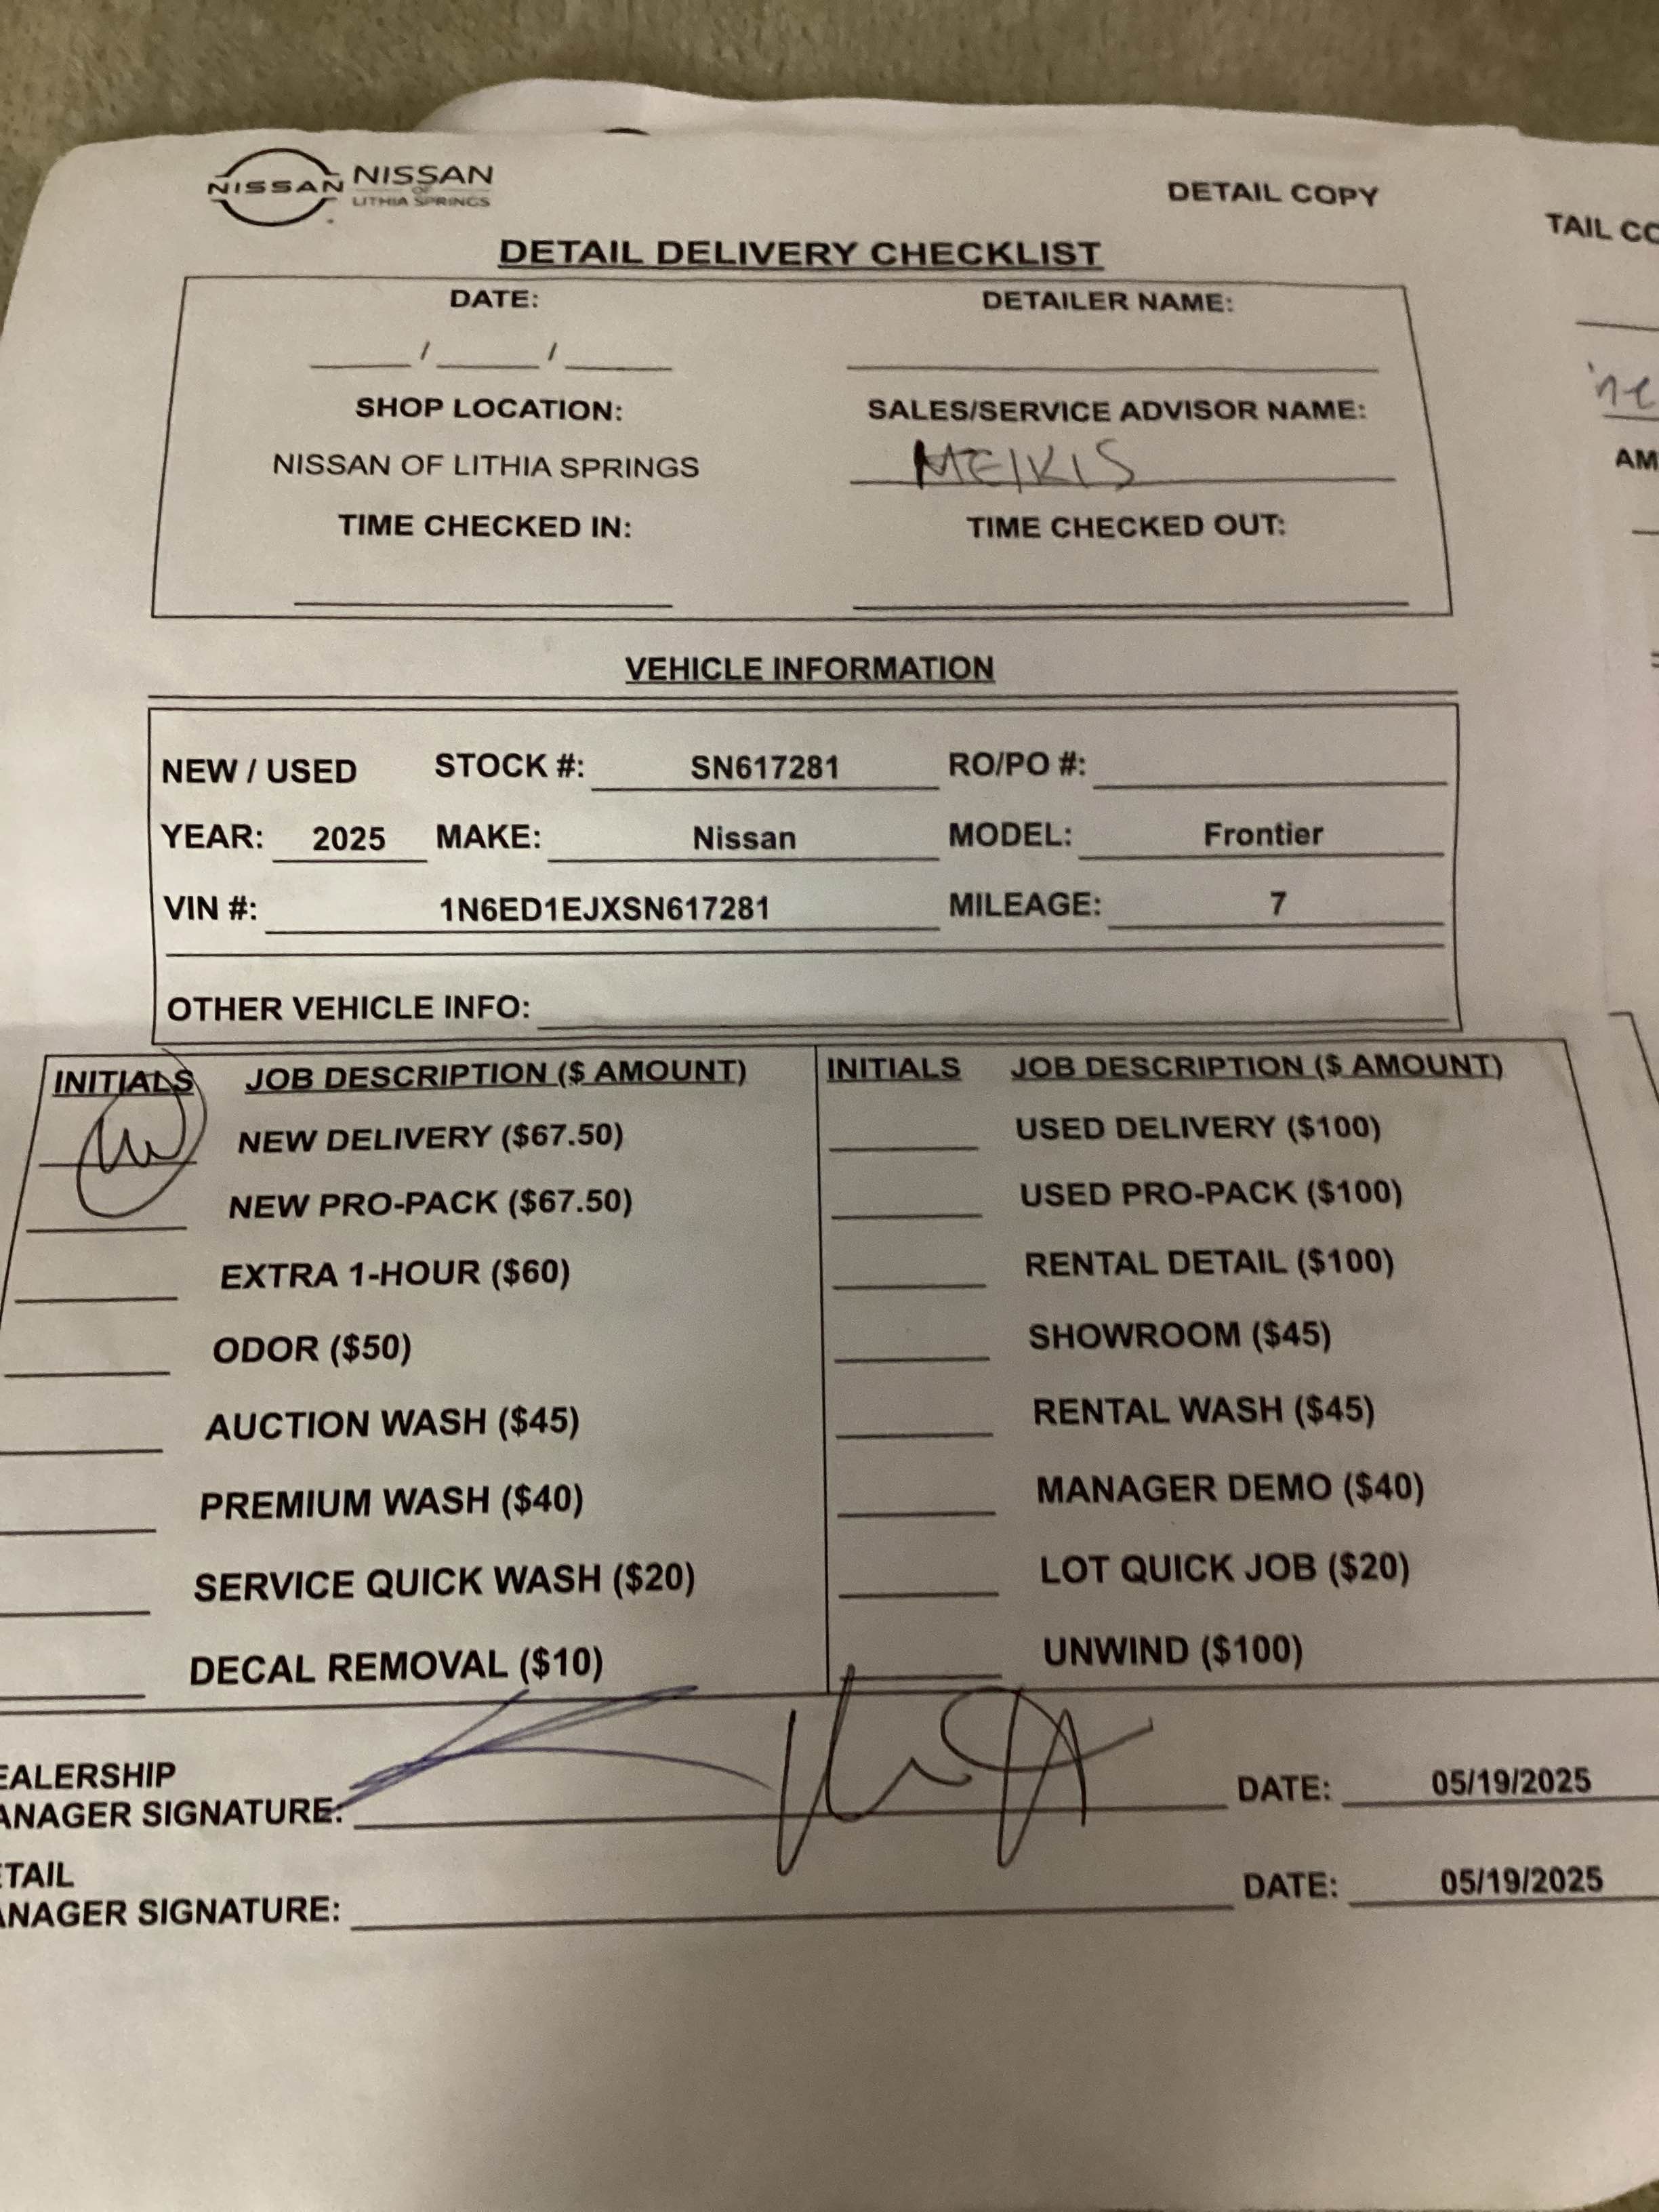 NISSAN NISSAN OF LITHIA SPRINGS
DETAIL COPY
TAIL CO
DETAIL DELIVERY CHECKLIST
DATE: DETAILER NAME:
/ /
SHOP LOCATION: SALES/SERVICE ADVISOR NAME:
NISSAN OF LITHIA SPRINGS MEIKIS
AM
TIME CHECKED IN: TIME CHECKED OUT:
VEHICLE INFORMATION
NEW / USED STOCK #: SN617281 RO/PO #:
YEAR: 2025 MAKE: Nissan MODEL: Frontier
VIN #: 1N6ED1EJXSN617281 MILEAGE: 7
OTHER VEHICLE INFO:
INITIALS JOB DESCRIPTION ($ AMOUNT) INITIALS JOB DESCRIPTION ($ AMOUNT)
NEW DELIVERY ($67.50) USED DELIVERY ($100)
NEW PRO-PACK ($67.50) USED PRO-PACK ($100)
EXTRA 1-HOUR ($60) RENTAL DETAIL ($100)
ODOR ($50) SHOWROOM ($45)
AUCTION WASH ($45) RENTAL WASH ($45)
PREMIUM WASH ($40) MANAGER DEMO ($40)
SERVICE QUICK WASH ($20) LOT QUICK JOB ($20)
DECAL REMOVAL ($10) UNWIND ($100)
EALERSHIP
ANAGER SIGNATURE: DATE: 05/19/2025
ETAIL
ANAGER SIGNATURE: DATE: 05/19/2025